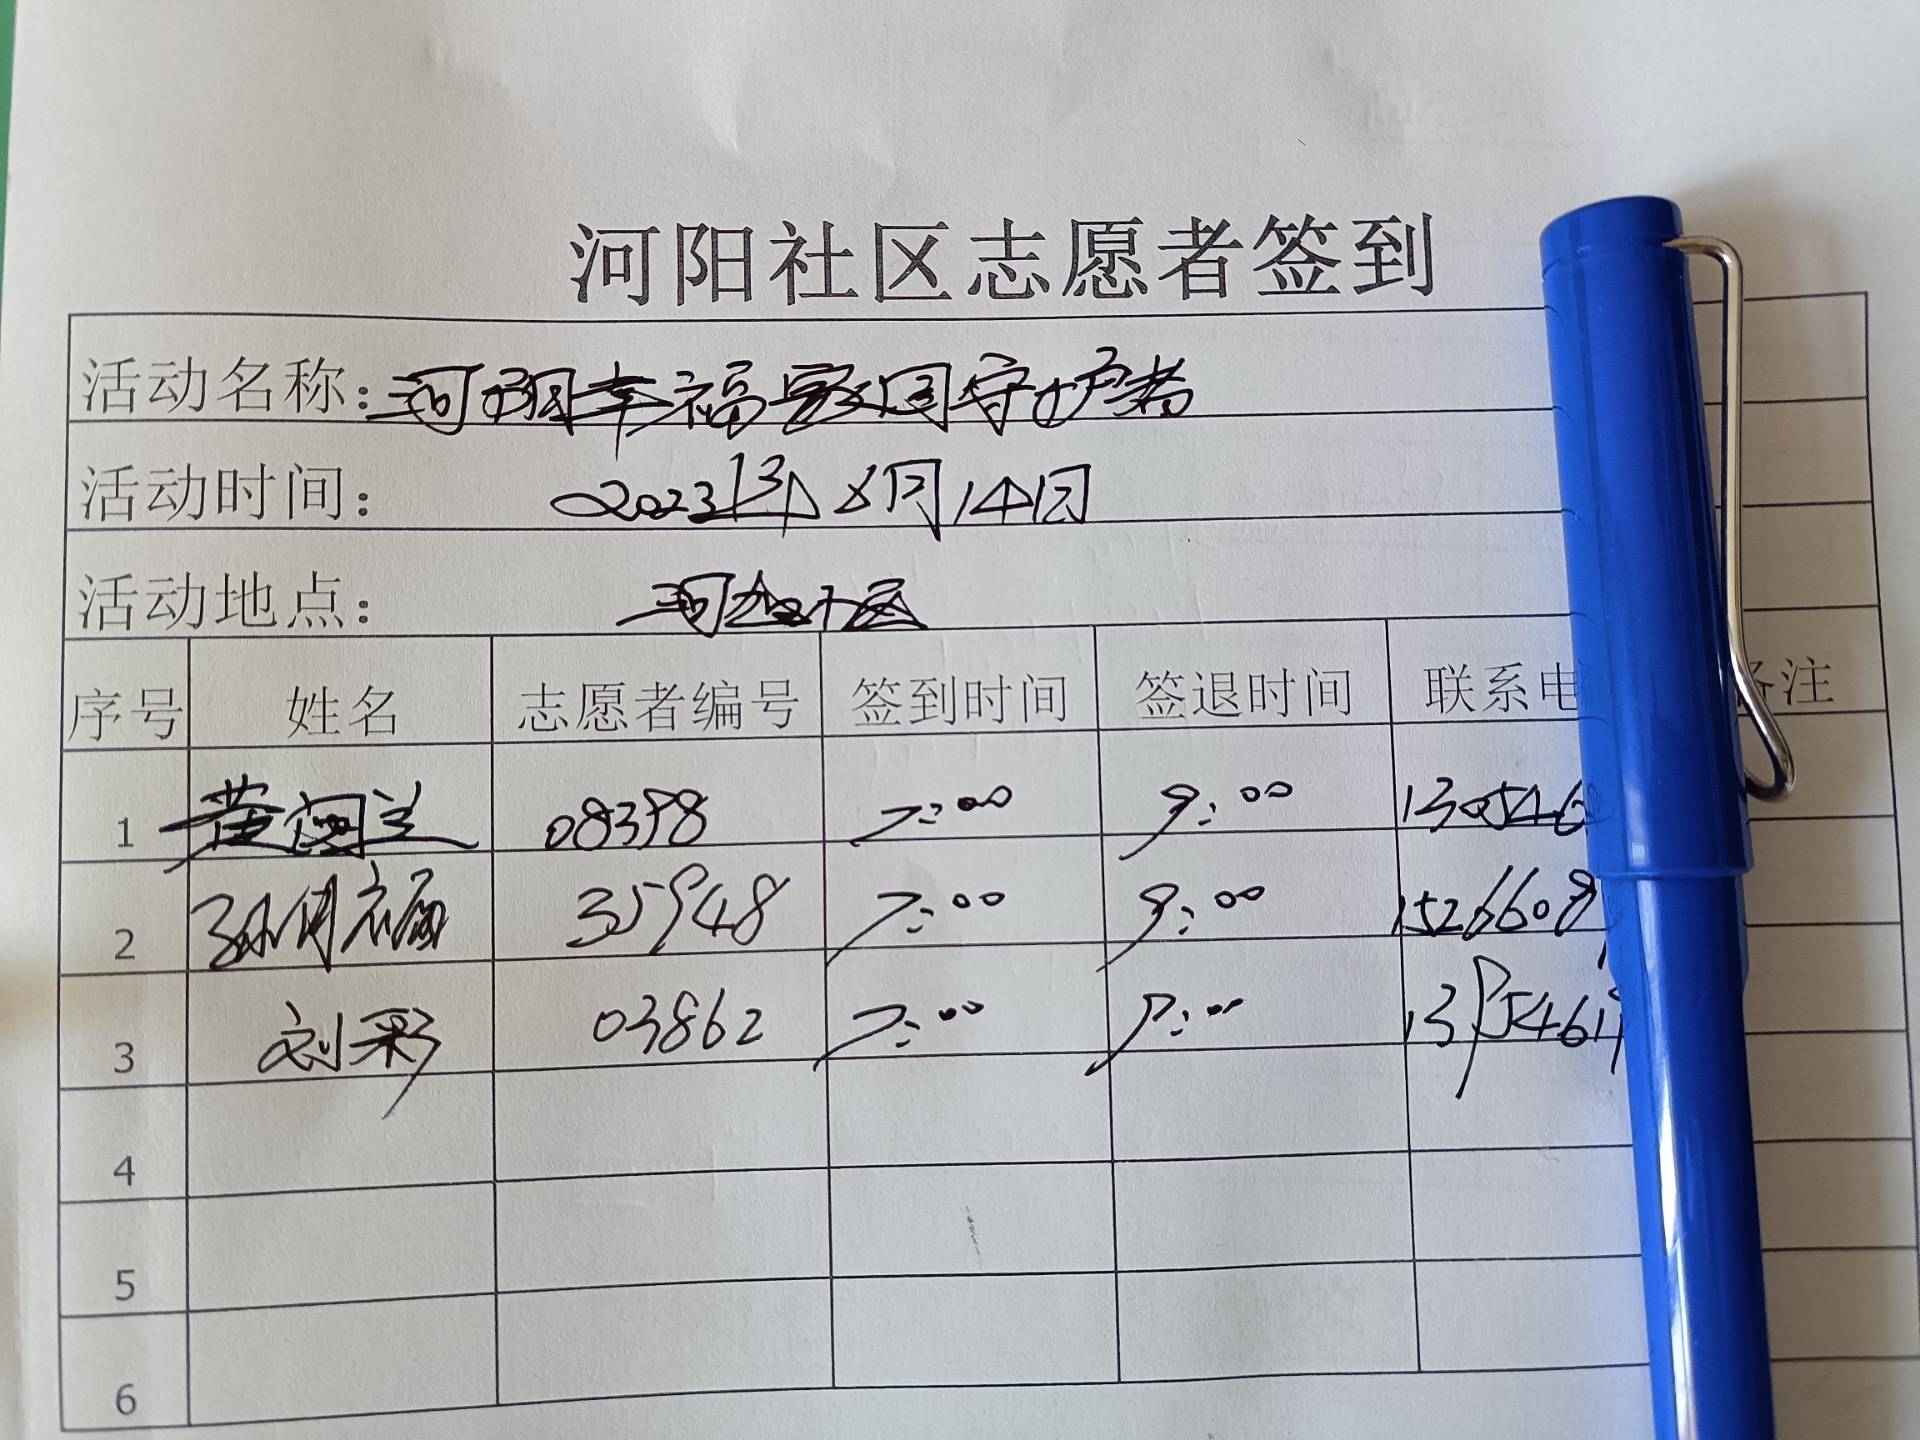 河阳社区志愿者签到
活动名称：河阳幸福家园守护者
活动时间： 2023年8月14日
活动地点： 小区
序号 姓名 志愿者编号 签到时间 签退时间 联系电 备注
1 黄 兰 08398 7:00 9:00 130546
2 孙 福 35948 7:00 9:00 1526608
3 刘彩 03862 7:00 9:00 1395461
4
5
6